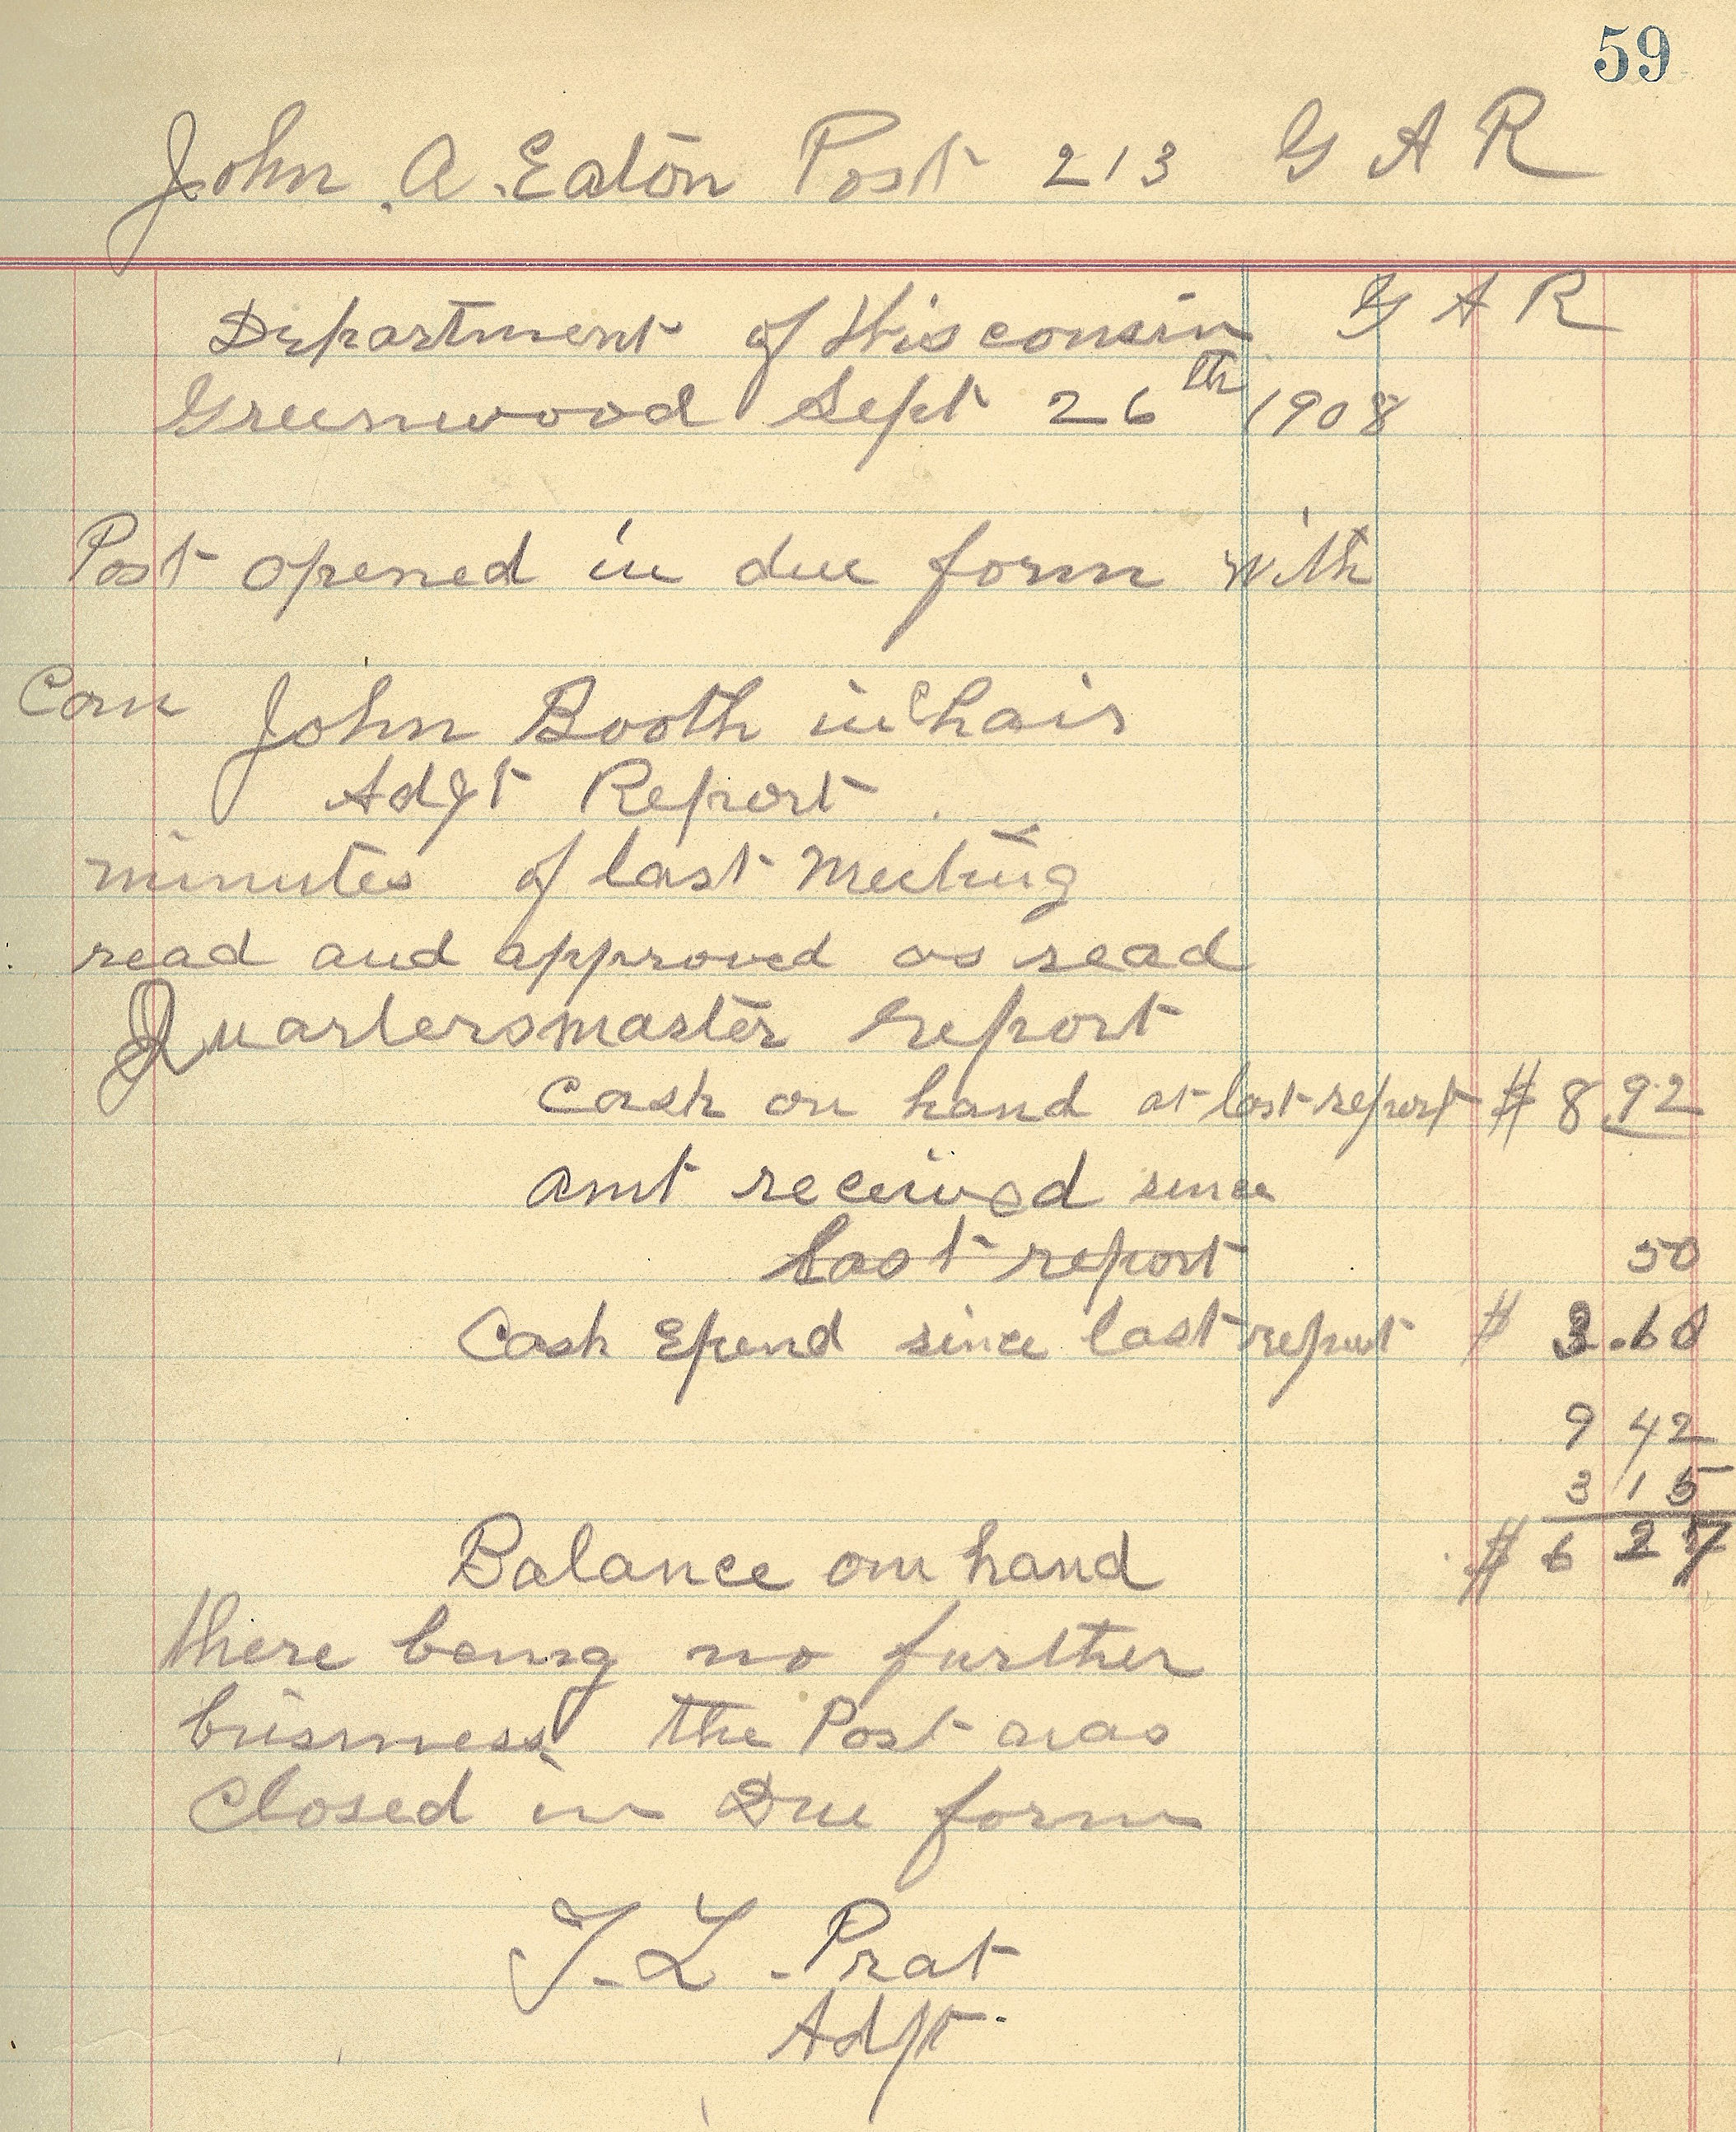 59
John . A . Eaton Post 213 G A R
Department of Wisconsin G A R
Greenwood Sept 26th 1908
Post opened in due form with
Com John Booth in Chair
Adjt Report
minutes of last Meeting
read and approved as read
Quartersmaster report
Cash on hand at last report $ 8.92
amt received since
last report 50
Cash Epend since last report $ .60
9 42
3 15
Balance on hand $ 6 27
there being no further
business the Post was
Closed in Due form
T. L. Prat
Adjt.